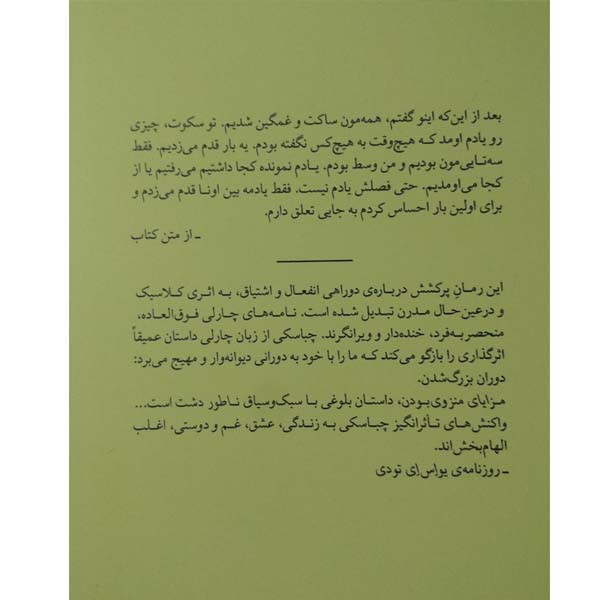 بعد از این‌که اینو گفتم، همه‌مون ساکت و غمگین شدیم. تو سکوت، چیزی
رو یادم اومد که هیچ‌وقت به هیچ‌کس نگفته بودم. یه بار قدم می‌زدیم. فقط
سه‌تایی‌مون بودیم و من وسط بودم. یادم نمونده کجا داشتیم می‌رفتیم یا از
کجا می‌اومدیم. حتی فصلش یادم نیست. فقط یادمه بین اونا قدم می‌زدم و
برای اولین بار احساس کردم به جایی تعلق دارم.
ـ از متن کتاب
این رمانِ پرکشش درباره‌ی دوراهی انفعال و اشتیاق، به اثری کلاسیک
و درعین‌حال مدرن تبدیل شده است. نامه‌های چارلی فوق‌العاده،
منحصربه‌فرد، خنده‌دار و ویرانگرند. چباسکی از زبان چارلی داستان عمیقاً
اثرگذاری را بازگو می‌کند که ما را با خود به دورانی دیوانه‌وار و مهیج می‌برد:
دوران بزرگ‌شدن.
مزایای منزوی‌بودن، داستان بلوغی با سبک‌وسیاق ناطور دشت است...
واکنش‌های تأثرانگیز چباسکی به زندگی، عشق، غم و دوستی، اغلب
الهام‌بخش‌اند.
ـ روزنامه‌ی یو‌اِس‌اِی تودی